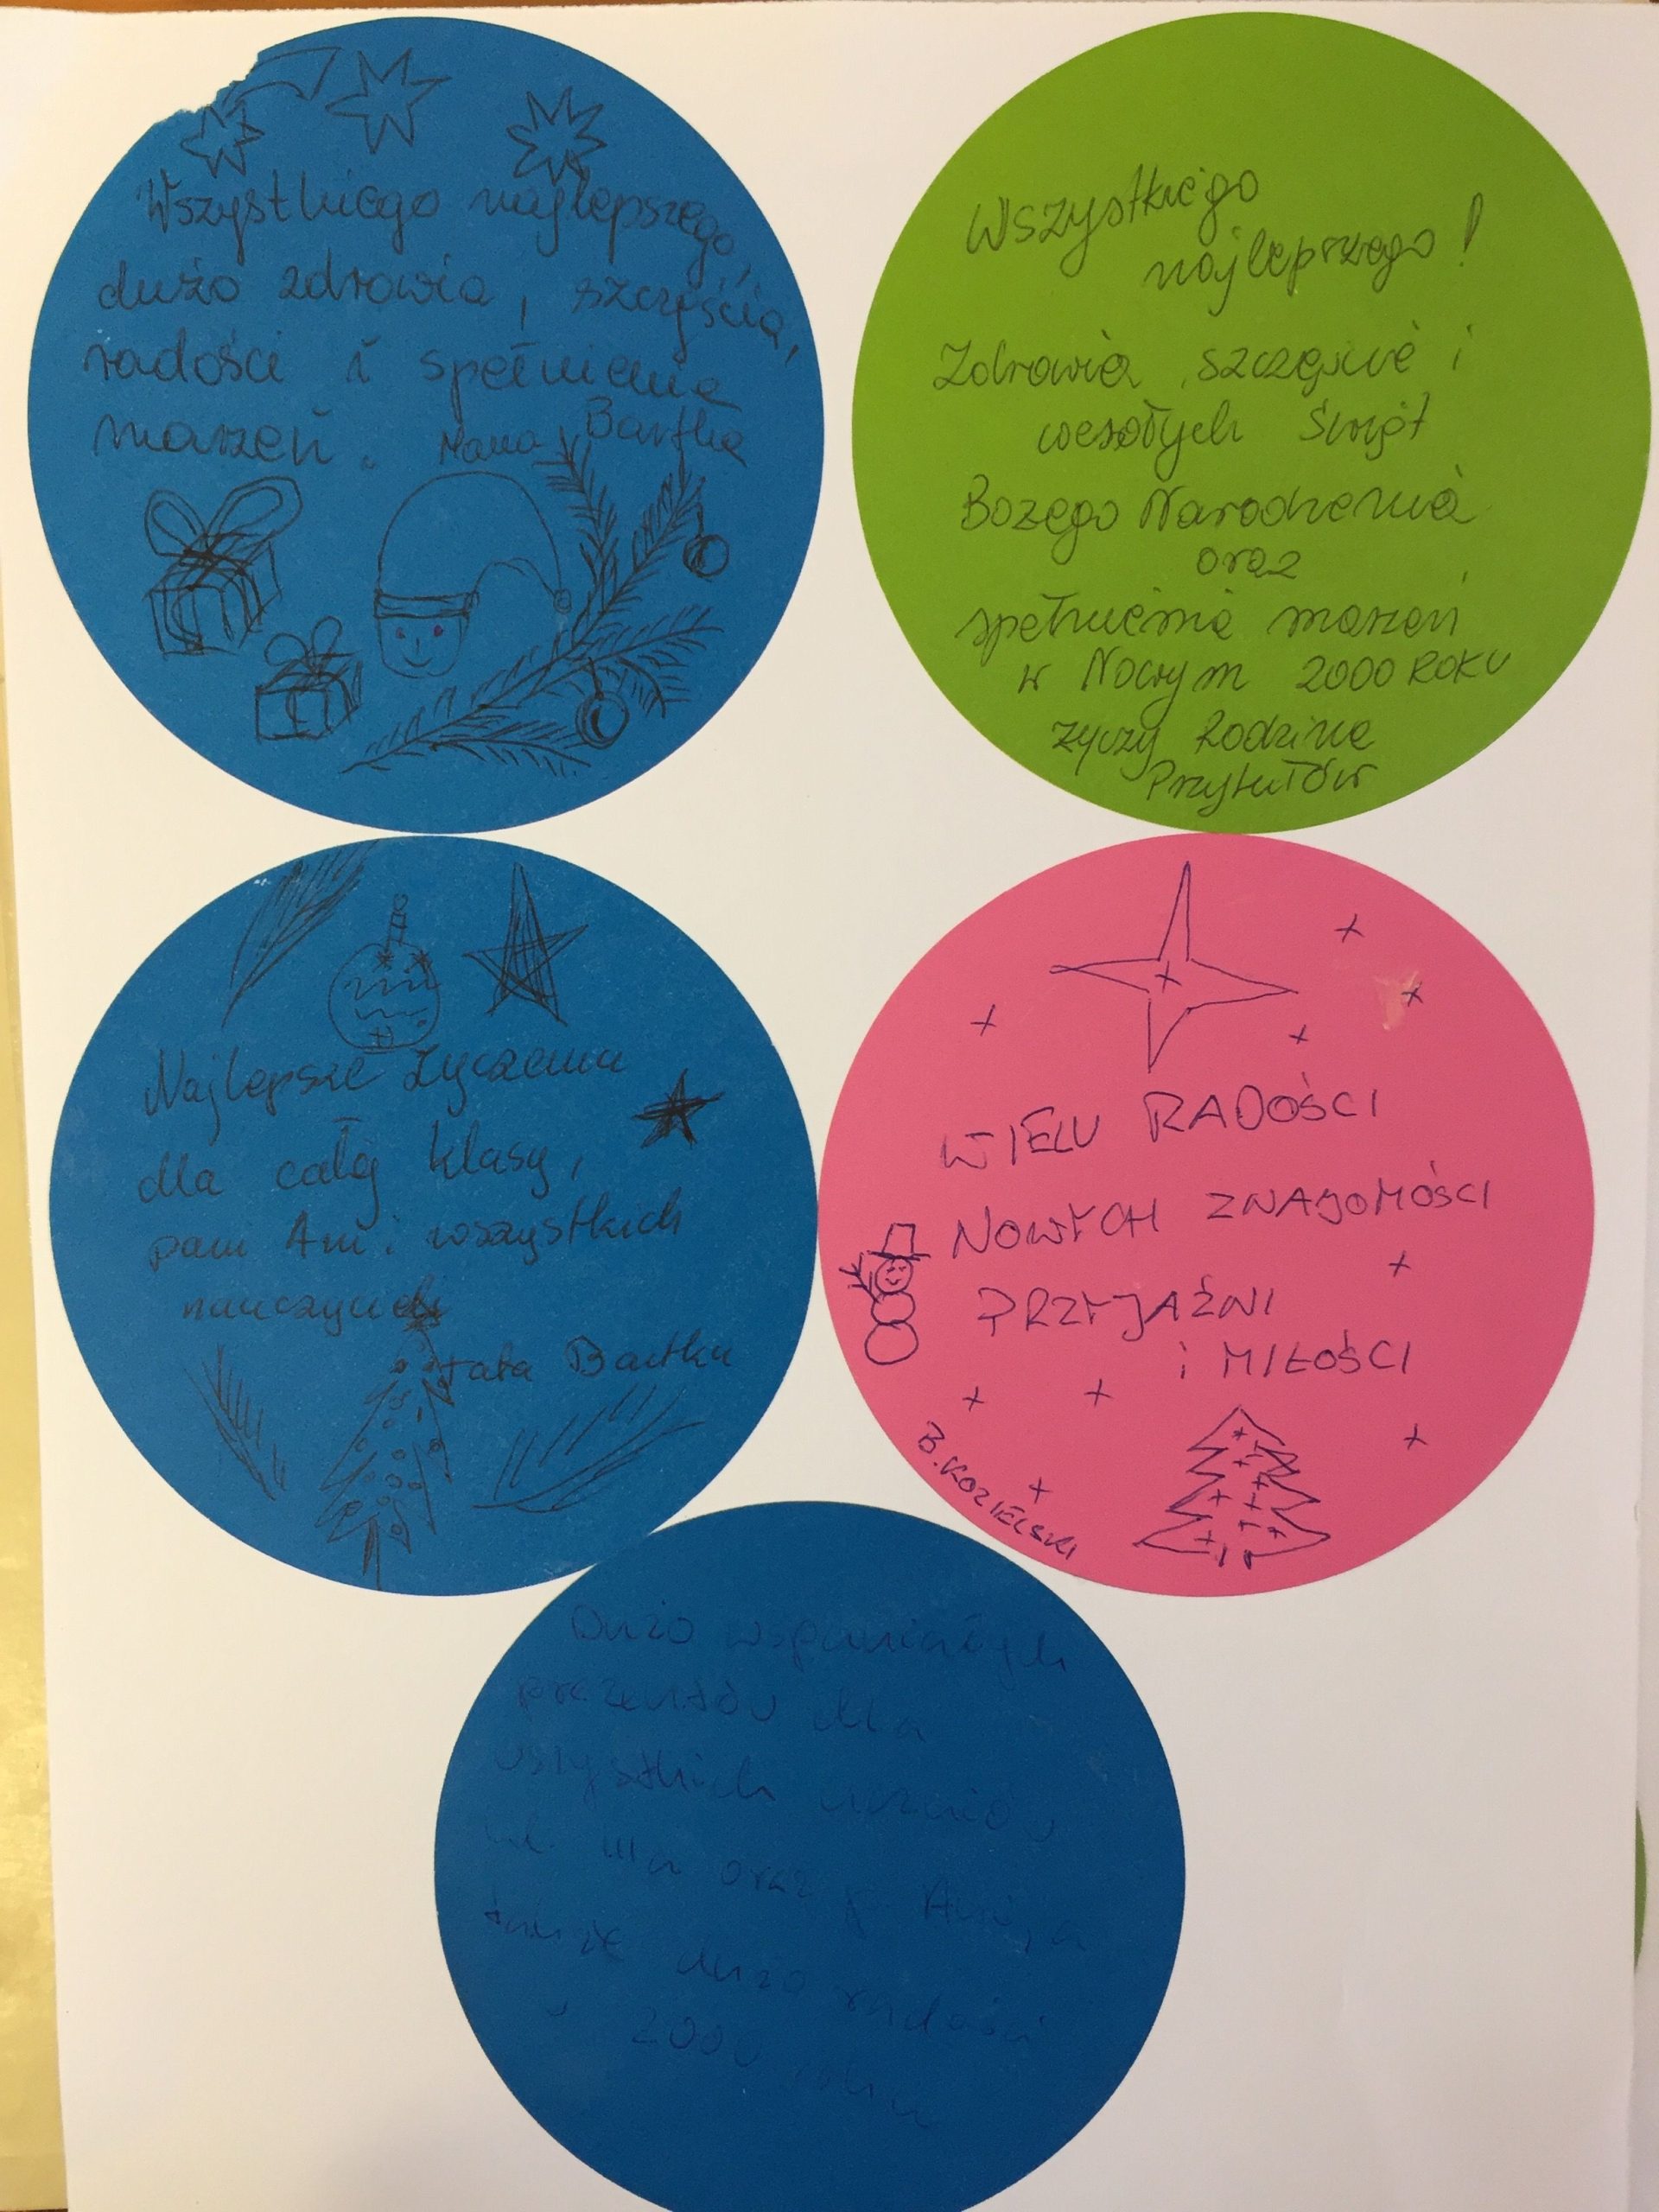 Wszystkiego najlepszego,
dużo zdrowia, szczęścia,
radości i spełnienia
marzeń. Mama Bartka
Wszystkiego
najleprzego!
Zdrowia, szczęśive i
wesołych Świąt
Bożego Narodzenia
oraz
spełnienia marzeń
w Nowym 2000 ROKU
życzy Rodzina
Przytułów
Najlepsze życzenia
dla całej klasy,
pani Ani i wszystkich
nauczycieli
tata Bartka
WIELU RADOŚCI
NOWYCH ZNAJOMOŚCI
PRZYJAŹNI
i MIŁOŚCI
B. KOZIELSKI
Dużo wspaniałych
prezentów dla
wszystkich uczniów
kl. III a oraz p. Ani, a
także dużo radości
w 2000 roku